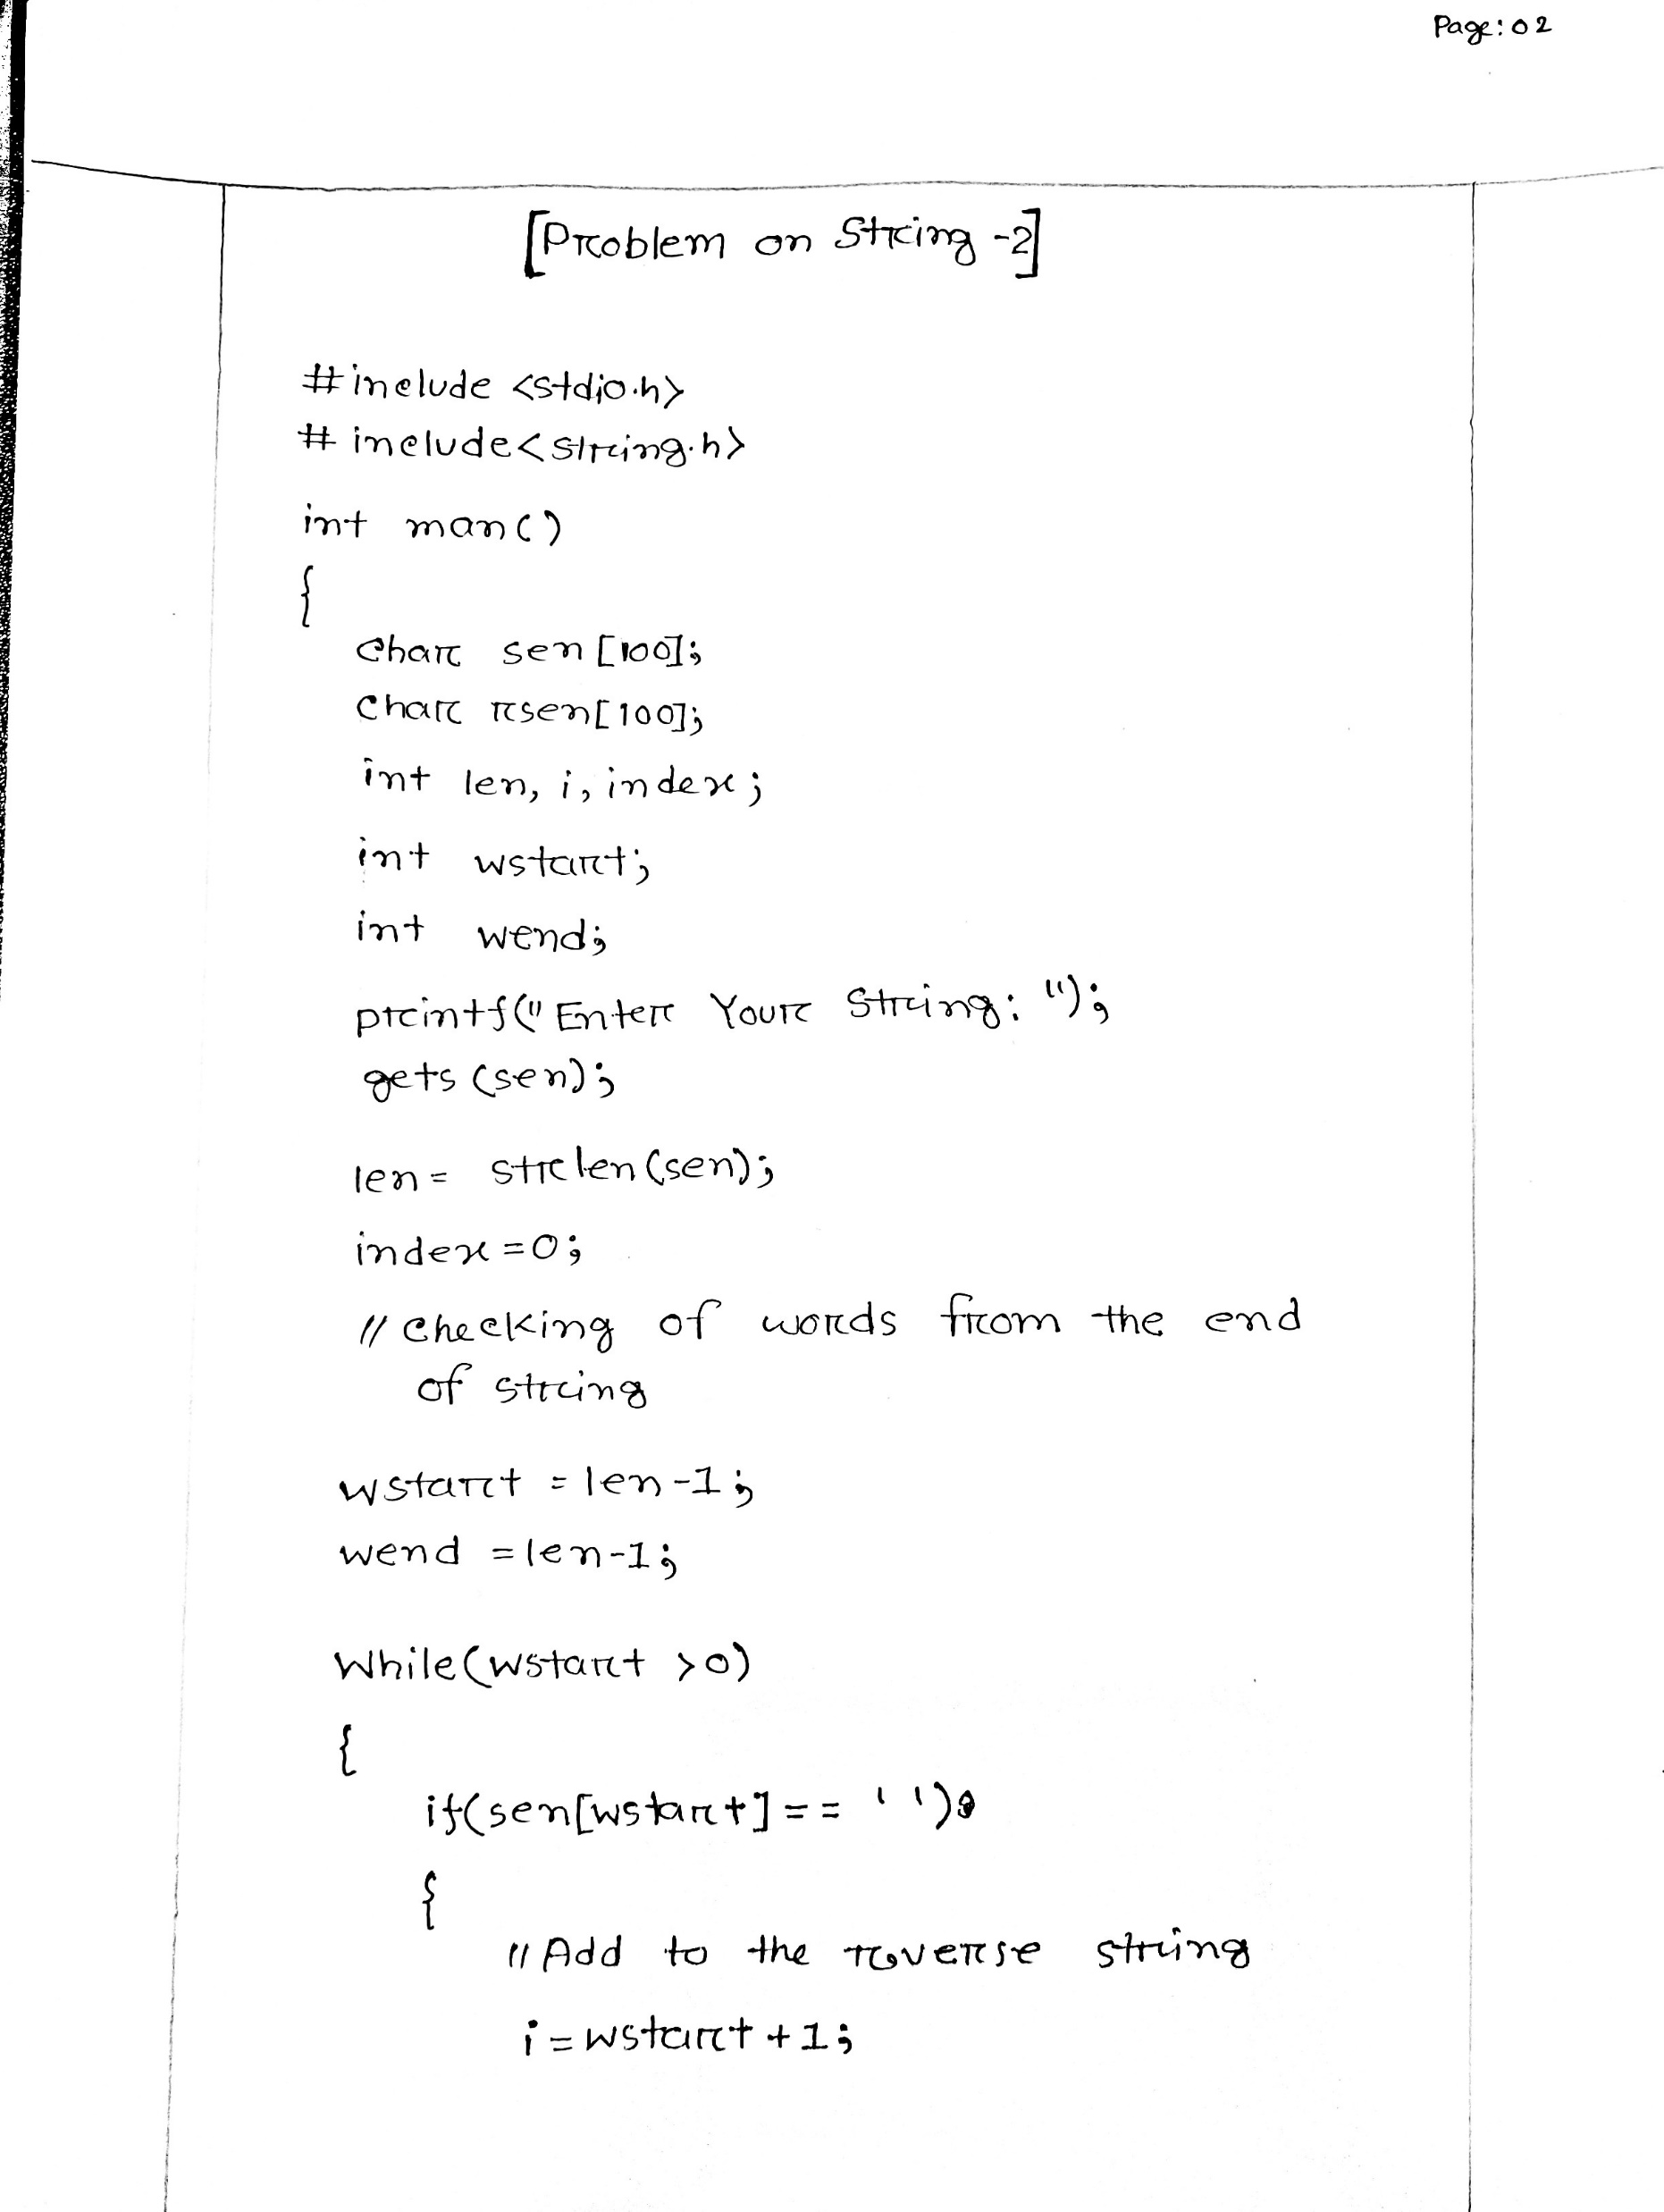 Page: 02
[Problem on String -2]
#include <stdio.h>
# include<string.h>
int man()
{
char sen [100];
char rsen[100];
int len, i, index;
int wstart;
int wend;
printf("Enter Your String: ");
gets (sen);
len = strlen (sen);
index = 0;
// Checking of words from the end
of string
wstart = len -1;
wend = len-1;
While(wstart > 0)
{
if(sen[wstart] == ' ')
{
// Add to the reverse string
i = wstart + 1;